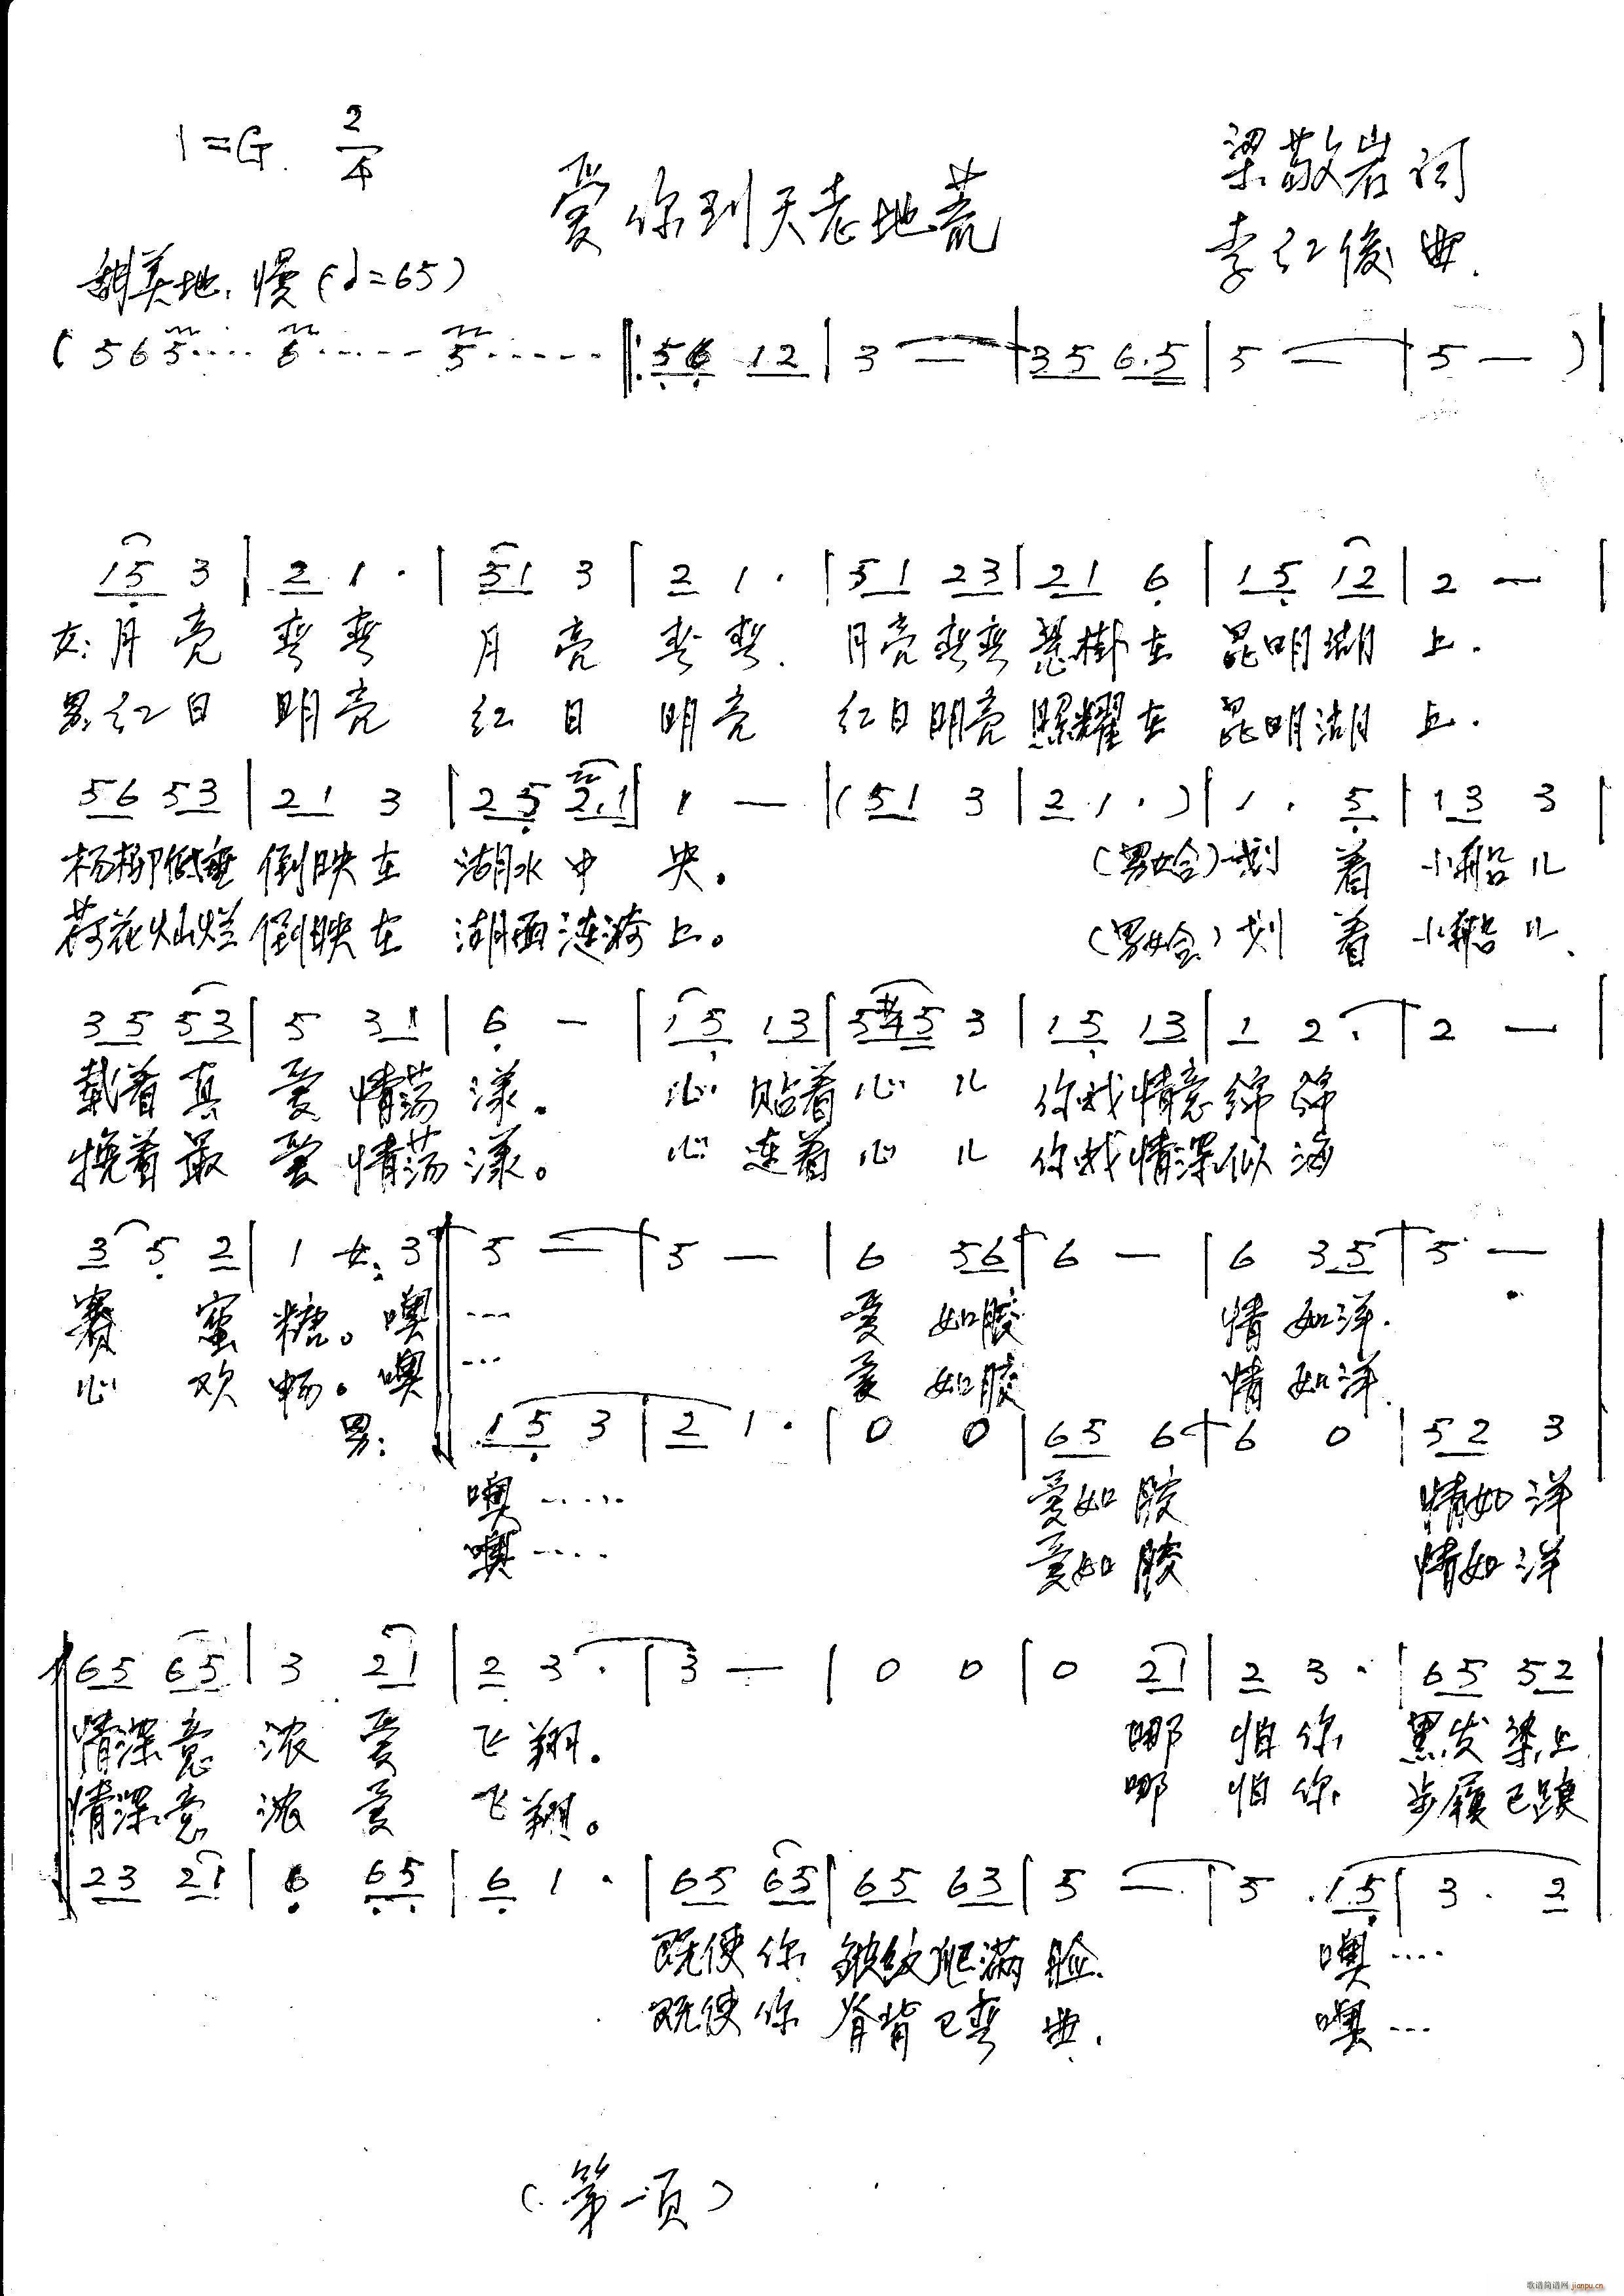 1=G. 2/4
爱你到天老地荒
梁敬岩词
李红俊曲.
甜美地.慢(♩=65)
( 5 6 5···· 6······ 5······ ‖: 5 6 1 2 | 3 — | 3 5 6.5 | 5 — | 5 — ) |
1 5 3 | 2 1 · | 5 1 3 | 2 1 · | 5 1 2 3 | 2 1 6 | 1 5 1 2 | 2 — |
女:月亮弯弯 月亮弯弯. 月亮弯弯悬掛在昆明湖上.
男:红日明亮 红日明亮 红日明亮照耀在昆明湖上.
5 6 5 3 | 2 1 3 | 2 5 2.1 | 1 — | (5 1 3 | 2 1 ·) | 1 · 5 | 1 3 3
杨柳低垂倒映在湖水中央。 (男女合)划着小船儿
荷花灿烂倒映在湖面涟漪上。 (男女合)划着小船儿.
3 5 5 3 | 5 3 1 | 6 — | 1 5 1 3 | 5 #4 5 3 | 1 5 1 3 | 1 2 · | 2 — |
载着真爱情荡漾. 心贴着心儿你我情意绵绵
挽着最爱情荡漾。 心连着心儿你我情深似海
3 5 2 | 1 女: 3 ‖ 5 — | 5 — | 6 5 6 | 6 — | 6 3 5 | 5 — |
赛蜜糖。噢 ··· 爱如胶 情如洋.
心欢畅。噢 ··· 爱如胶 情如洋.
男: 1 5 3 | 2 1 · | 0 0 | 6 5 6 | 6 0 | 5 2 3
噢····· 爱如胶 情如洋
噢···· 爱如胶 情如洋
6 5 6 5 | 3 2 1 | 2 3 · | 3 — | 0 0 | 0 2 1 | 2 3 · | 6 5 5 2
情深意浓爱飞翔. 哪怕你黑发染上
情深意浓爱飞翔。 哪怕你步履已踉
2 3 2 1 | 6 6 5 | 6 1 · | 6 5 6 5 | 6 5 6 3 | 5 — | 5 . 1 5 | 3 . 2
既使你皱纹爬满脸. 噢····
既使你脊背已弯曲. 噢···
(第一页)
歌谱简谱网 jianpu.cn